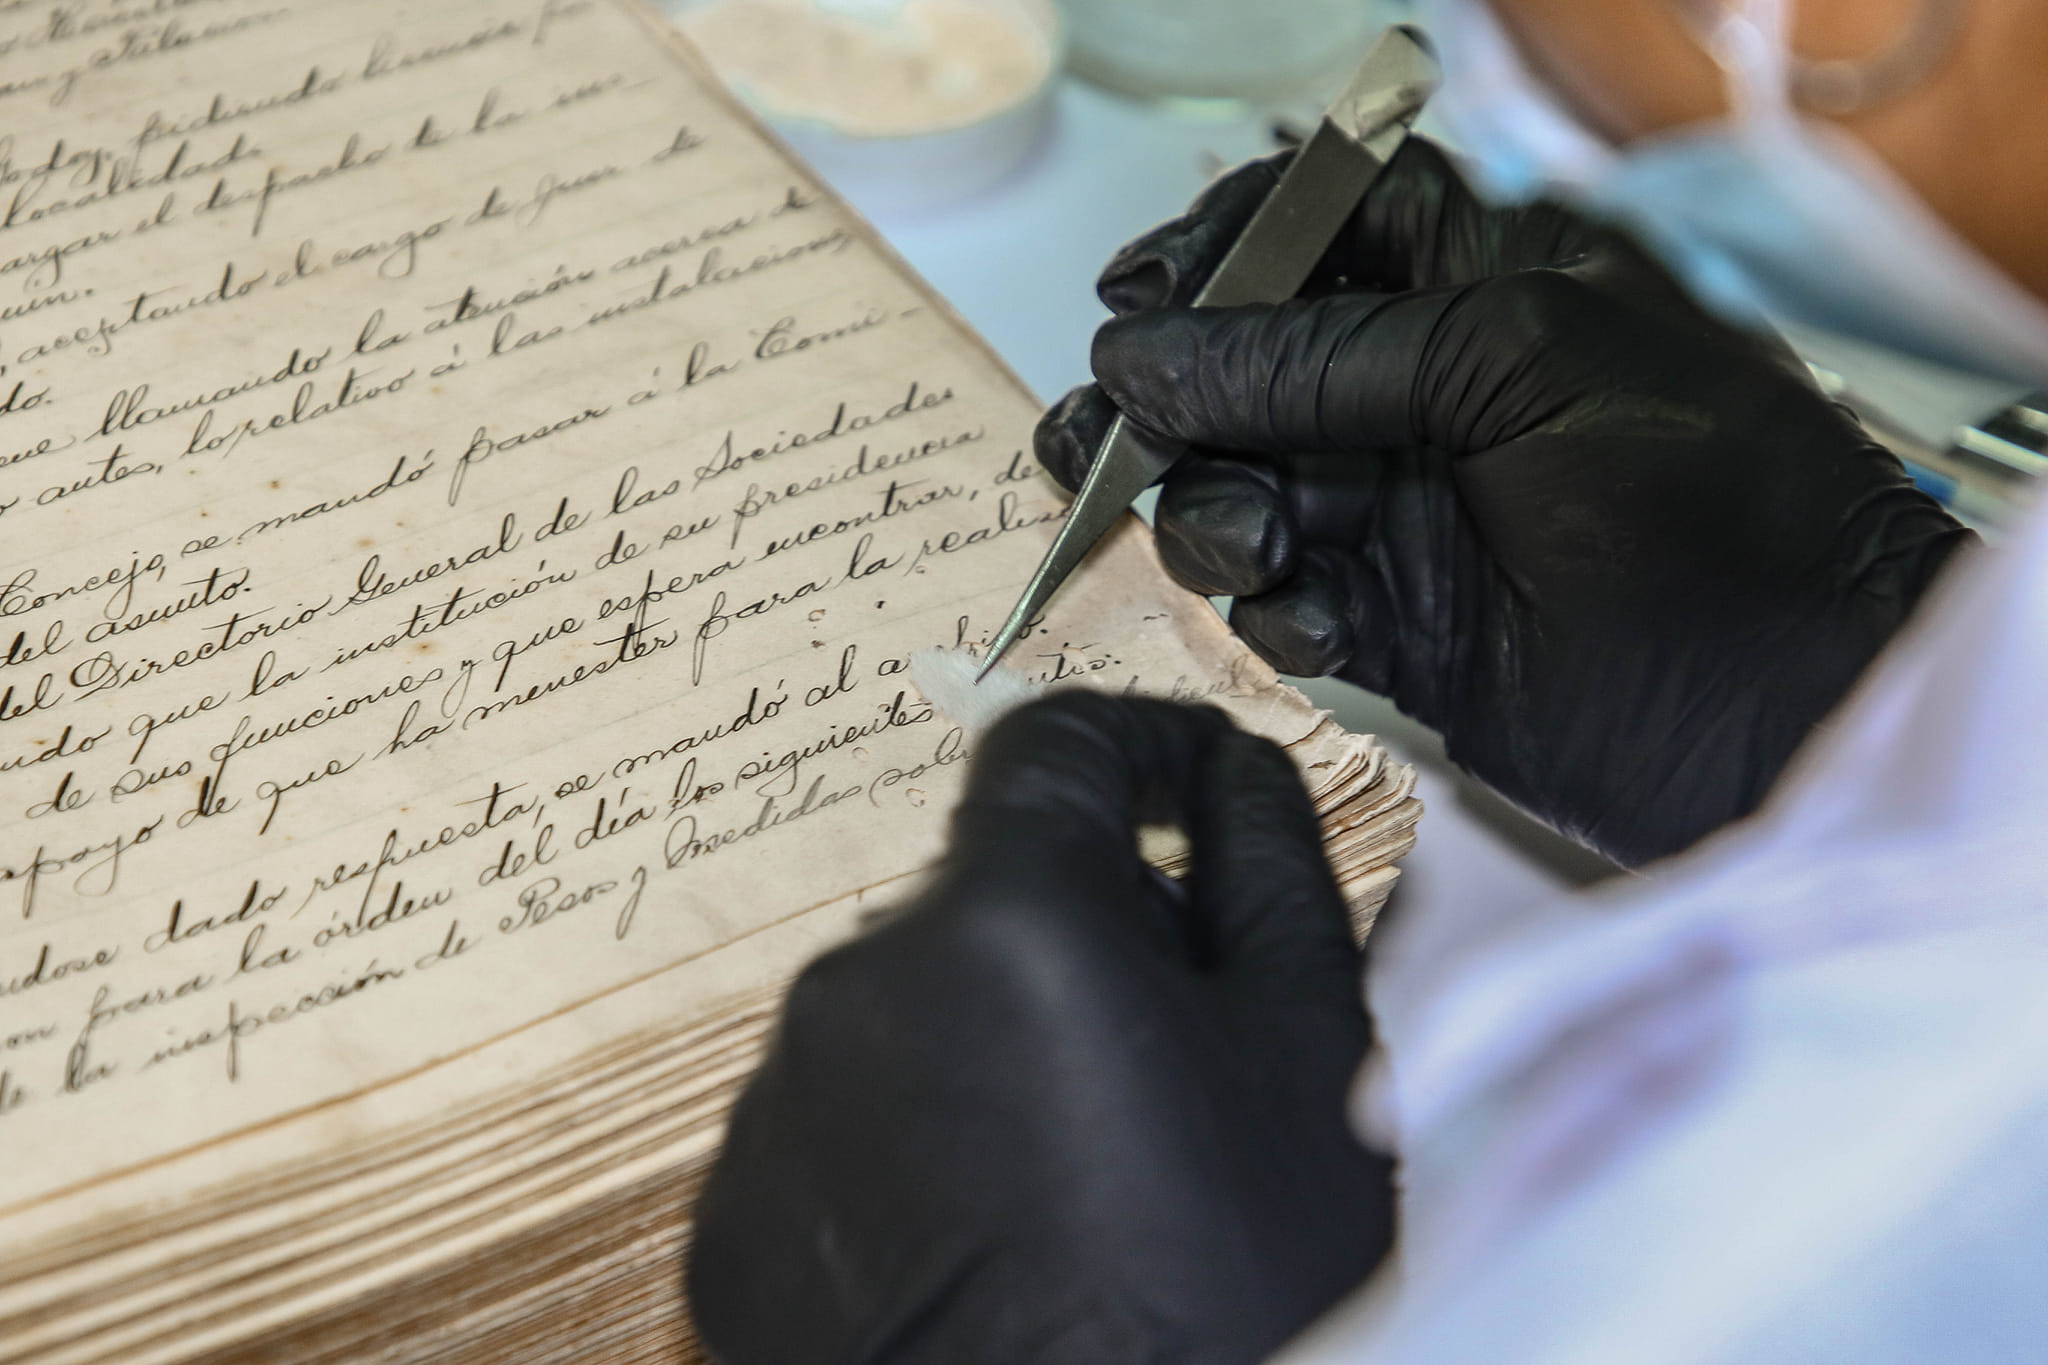 pidiendo licencia pa
localidad.
argar el despacho de la in-
aceptando el cargo de juez de
do.
llamando la atención acerca de
antes, lo relativo á las instalaciones
Concejo, se mandó pasar á la Comi-
del asunto.
del Directorio General de las Sociedades
ndo que la institución de su presidencia
de sus funciones y que espera encontrar, de
apoyo de que ha menester para la realiza
ndose dado respuesta, se mandó al archivo.
on para la órden del día los siguientes
de la inspección de Pesos y Medidas sobr